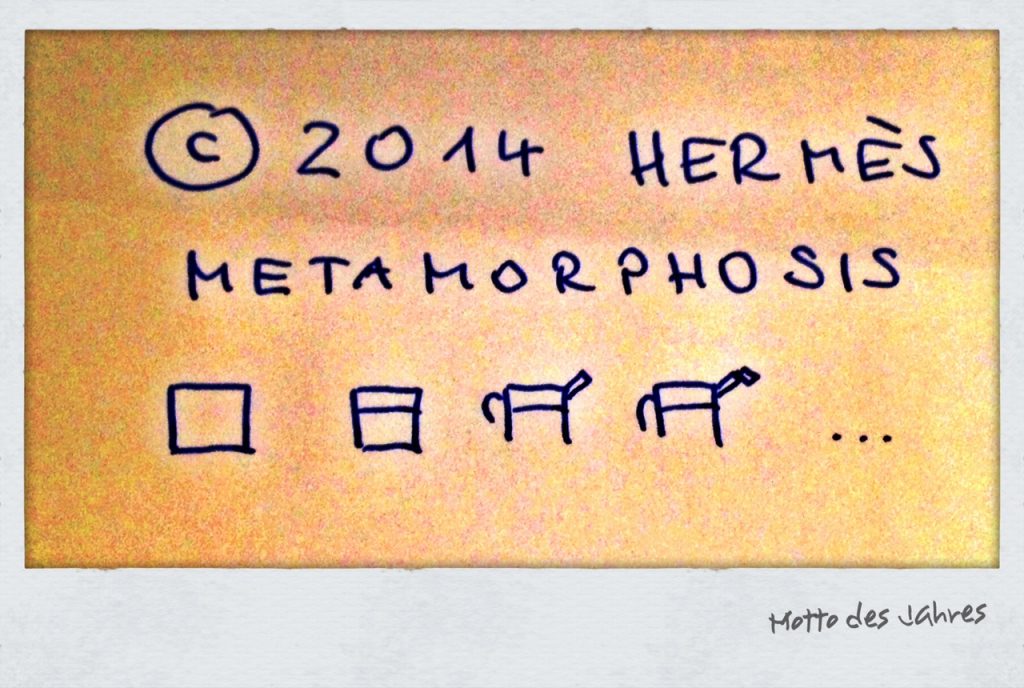 © 2014 HERMÈS
METAMORPHOSIS
...
Motto des Jahres